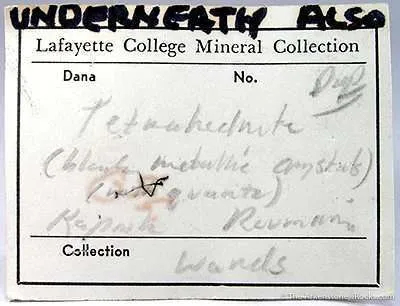 UNDERNEATH ALSO
Lafayette College Mineral Collection
Dana No.
Dup
Tetrahedrite
(black metallic crystals)
(with quartz)
Kapnik Roumania
Collection Wards